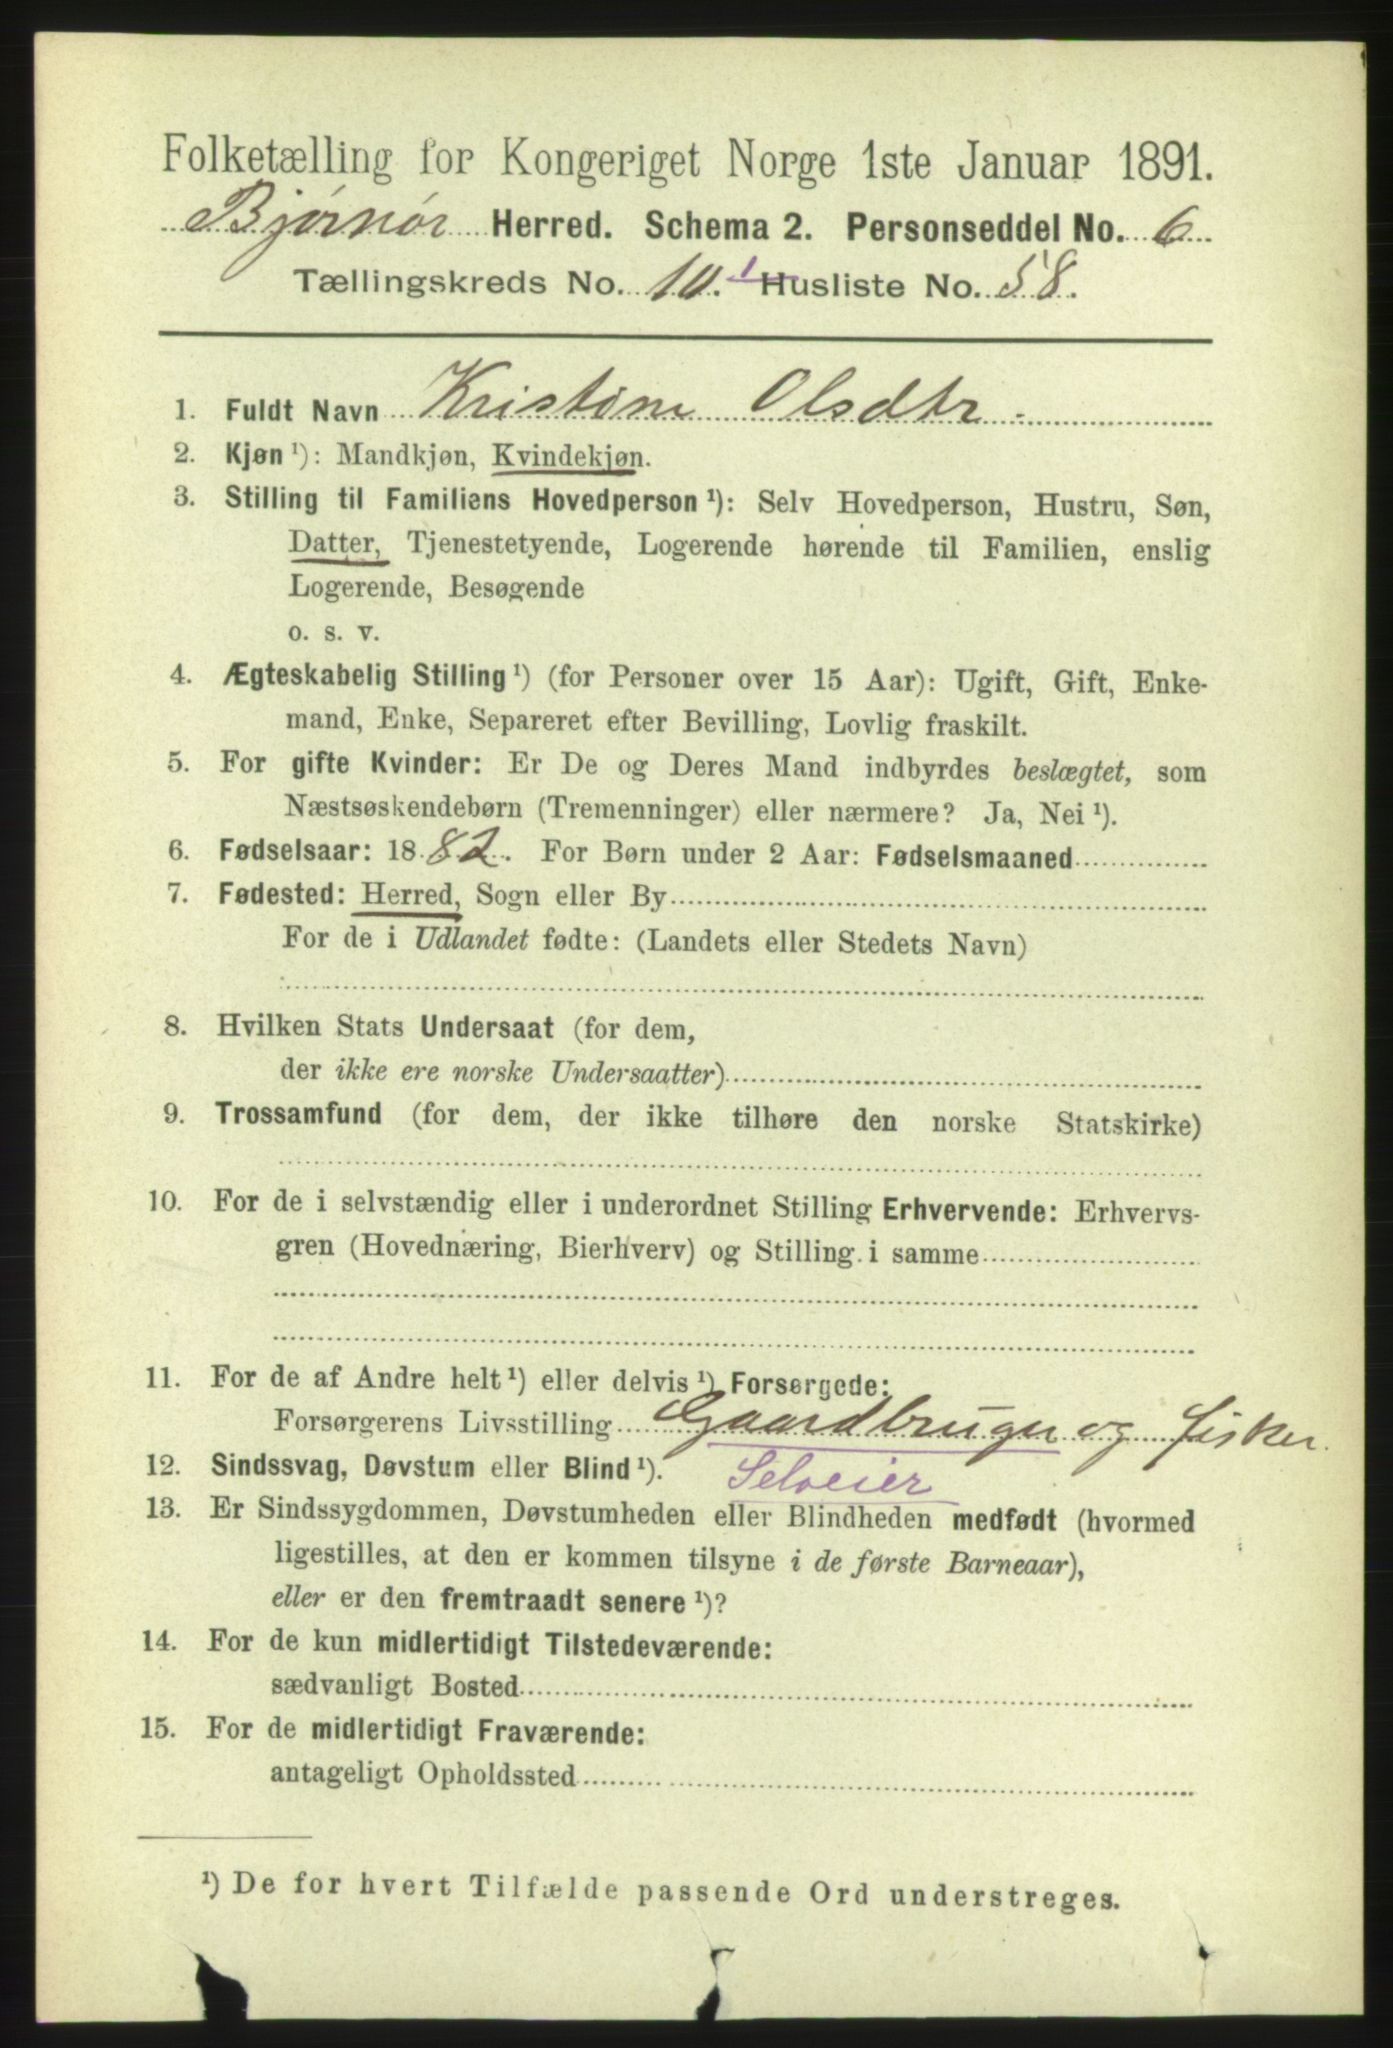 Folketælling for Kongeriget Norge 1ste Januar 1891.
Bjørnør Herred. Schema 2. Personseddel No. 6
Tællingskreds No. 10. 1 Husliste No. 58.
1. Fuldt Navn Kristine Olsdtr.
2. Kjøn ¹): Mandkjøn, Kvindekjøn.
3. Stilling til Familiens Hovedperson ¹): Selv Hovedperson, Hustru, Søn,
Datter, Tjenestetyende, Logerende hørende til Familien, enslig
Logerende, Besøgende
o. s. v.
4. Ægteskabelig Stilling ¹) (for Personer over 15 Aar): Ugift, Gift, Enke-
mand, Enke, Separeret efter Bevilling, Lovlig fraskilt.
5. For gifte Kvinder: Er De og Deres Mand indbyrdes beslægtet, som
Næstsøskendebørn (Tremenninger) eller nærmere? Ja, Nei ¹).
6. Fødselsaar: 1882. For Børn under 2 Aar: Fødselsmaaned
7. Fødested: Herred, Sogn eller By
For de i Udlandet fødte: (Landets eller Stedets Navn)
8. Hvilken Stats Undersaat (for dem,
der ikke ere norske Undersaatter)
9. Trossamfund (for dem, der ikke tilhøre den norske Statskirke)
10. For de i selvstændig eller i underordnet Stilling Erhvervende: Erhvervs-
gren (Hovednæring, Bierhverv) og Stilling i samme
11. For de af Andre helt ¹) eller delvis ¹) Forsørgede:
Forsørgerens Livsstilling Gaardbruger og Fisker.
12. Sindssvag, Døvstum eller Blind ¹). Selveier
13. Er Sindssygdommen, Døvstumheden eller Blindheden medfødt (hvormed
ligestilles, at den er kommen tilsyne i de første Barneaar),
eller er den fremtraadt senere ¹)?
14. For de kun midlertidigt Tilstedeværende:
sædvanligt Bosted
15. For de midlertidigt Fraværende:
antageligt Opholdssted
¹) De for hvert Tilfælde passende Ord understreges.